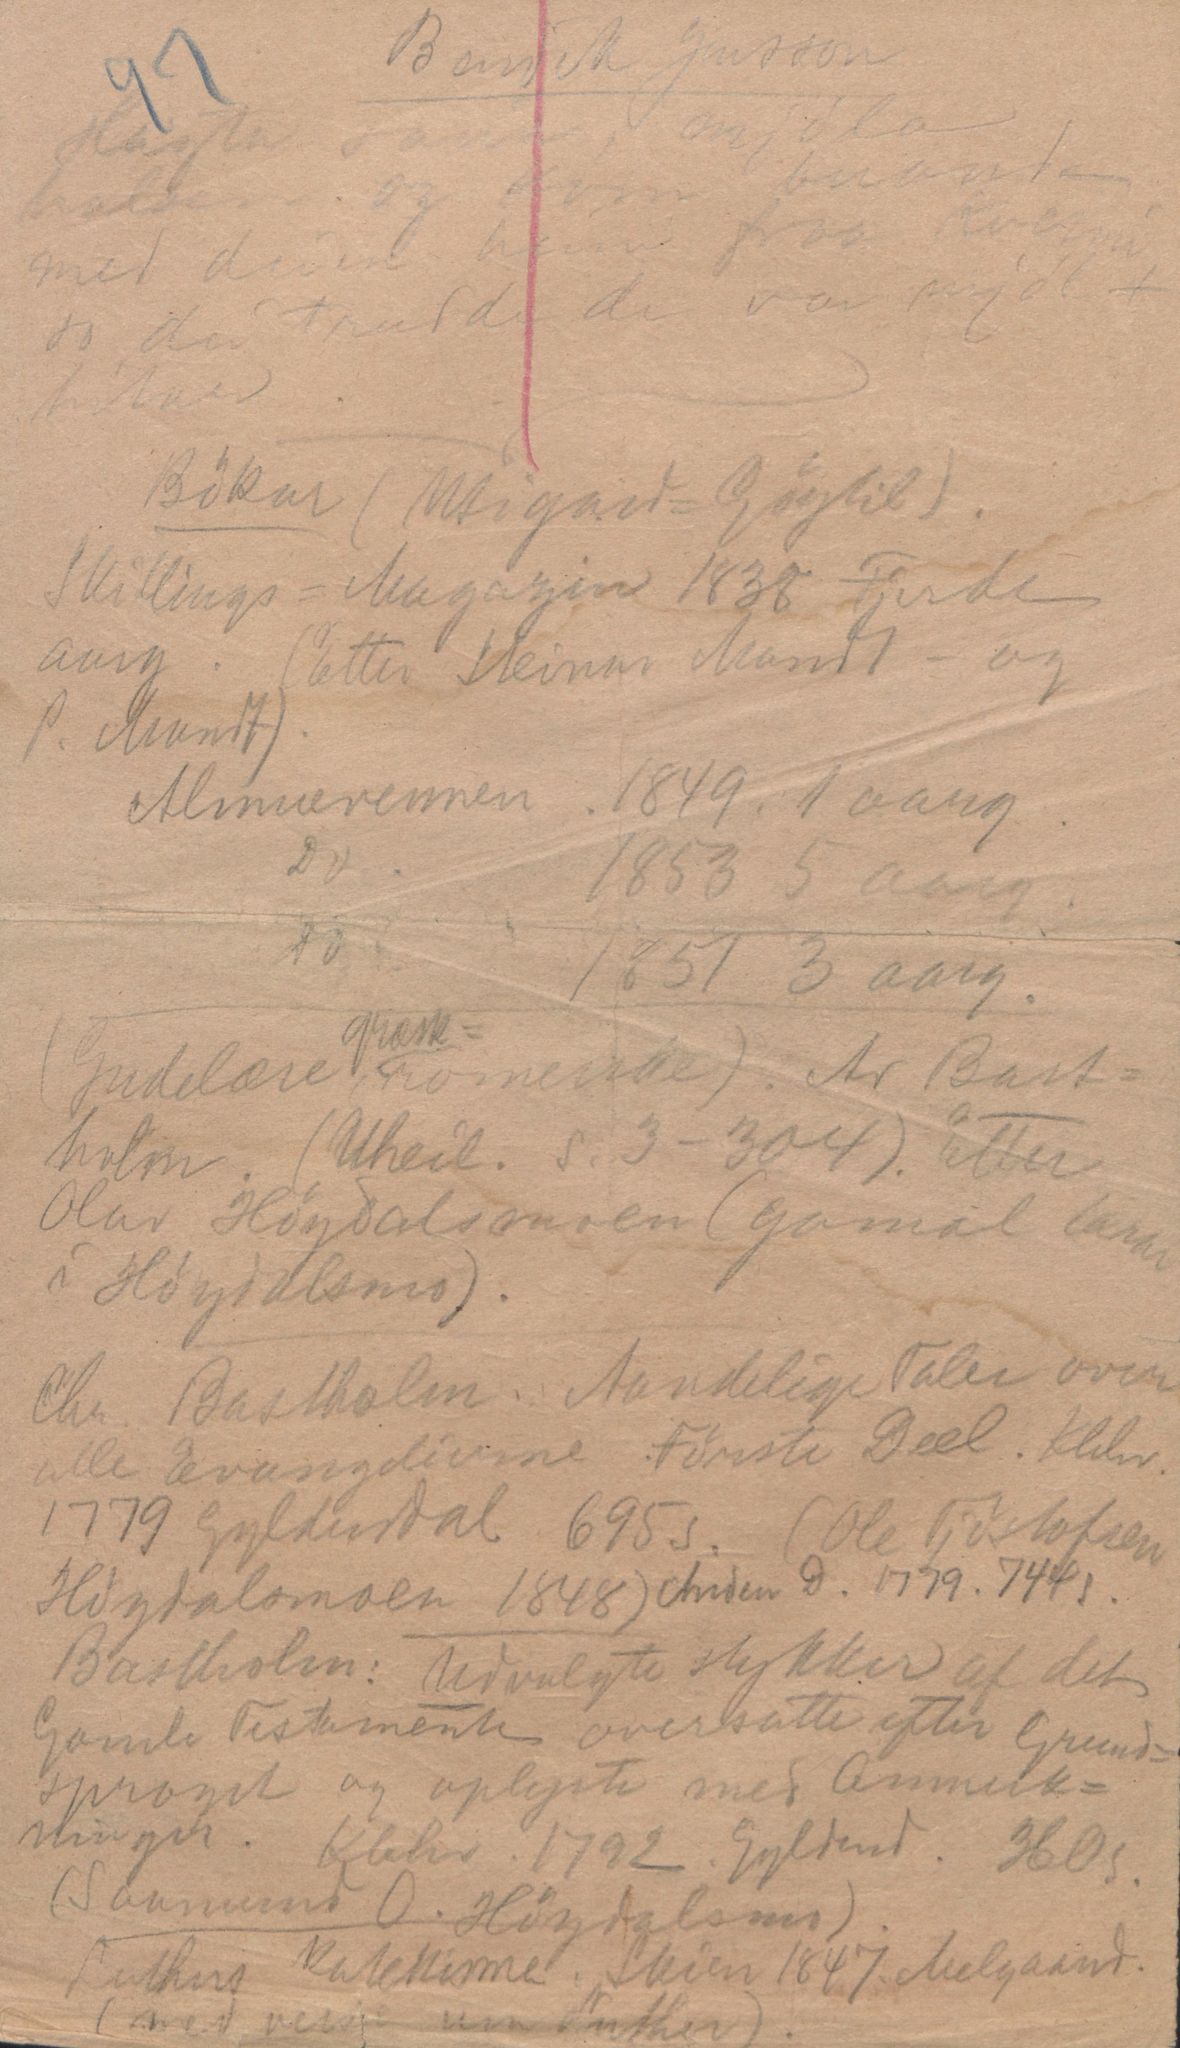 97
Bendik Jinsson
som, mjöla
og kom
med deim heim fraa
so dei trudde de var mjöl +
Bökar (Utigard = Göytil).
Skillings = Magazin 1838 Fjerde
aarg. (Etter Steinar Mandt - og
P. Mandt).
Almuevennen. 1849. 1 aarg.
Do. 1853 5 aarg.
Do 1851 3 aarg.
græsk =
(Gudelære romerske). Av Bast=
holm. (Utheil. s. 3 - 304). Etter
Olav Höydalsmoen (gamal lærar
i Höydalsmo).
Chr. Bastholm. Aandelige Taler over
alle Evangelierne. Förste Deel. Kbhv.
1779 Gyldendal 695 s. (Ole Tjöstofsen
Höydalsmoen 1848) Anden D. 1779. 744 s.
Bastholm: Udvalgte stykker af det
Gamle Testamente oversatte efter Grund=
sproget og oplyste med Anmerk=
ninger. Kbhv. 1792. Gyldend.
(Saamund O. Höydalsmo).
Luthers Katekisme. Skien 1847. Melgaard.
(med vers um Luther).